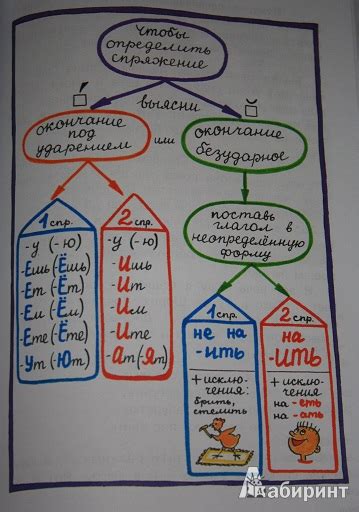 Чтобы
определить
спряжение
выясни
окончание
под
ударением
или
окончание
безударное
1 спр.
-у (-ю)
-Ешь (-Ёшь)
-Ет (-Ёт)
-Ем (-Ём)
-Ете (-Ёте)
-Ут (-Ют)
2 спр.
-у (-ю)
-Ишь
-Ит
-Им
-Ите
-Ат (-Ят)
поставь
глагол в
неопределённую
форму
1 спр.
не на
-ить
+ исклю-
чения:
брить,
стелить
2 спр.
на
-ИТЬ
+ исклю-
чения
на -еть
на -ать
Лабиринт